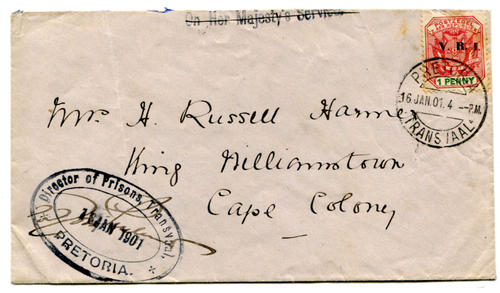 On Her Majesty's Service
POSTZEGEL
V.R.I.
1 PENNY
PRETORIA
16 JAN. 01. 4 --P.M.
TRANSVAAL.
Mrs H. Russell Harme
King Williamstown
Cape Colony
Director of Prisons, Transvaal,
16 JAN 1901
PRETORIA.